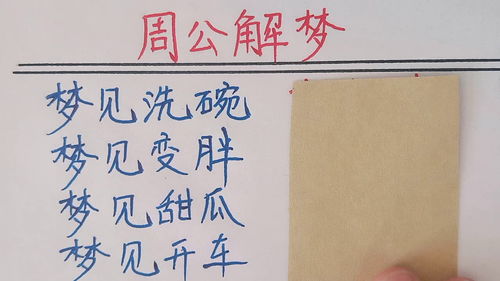 周公解梦
梦见洗碗
梦见变胖
梦见甜瓜
梦见开车